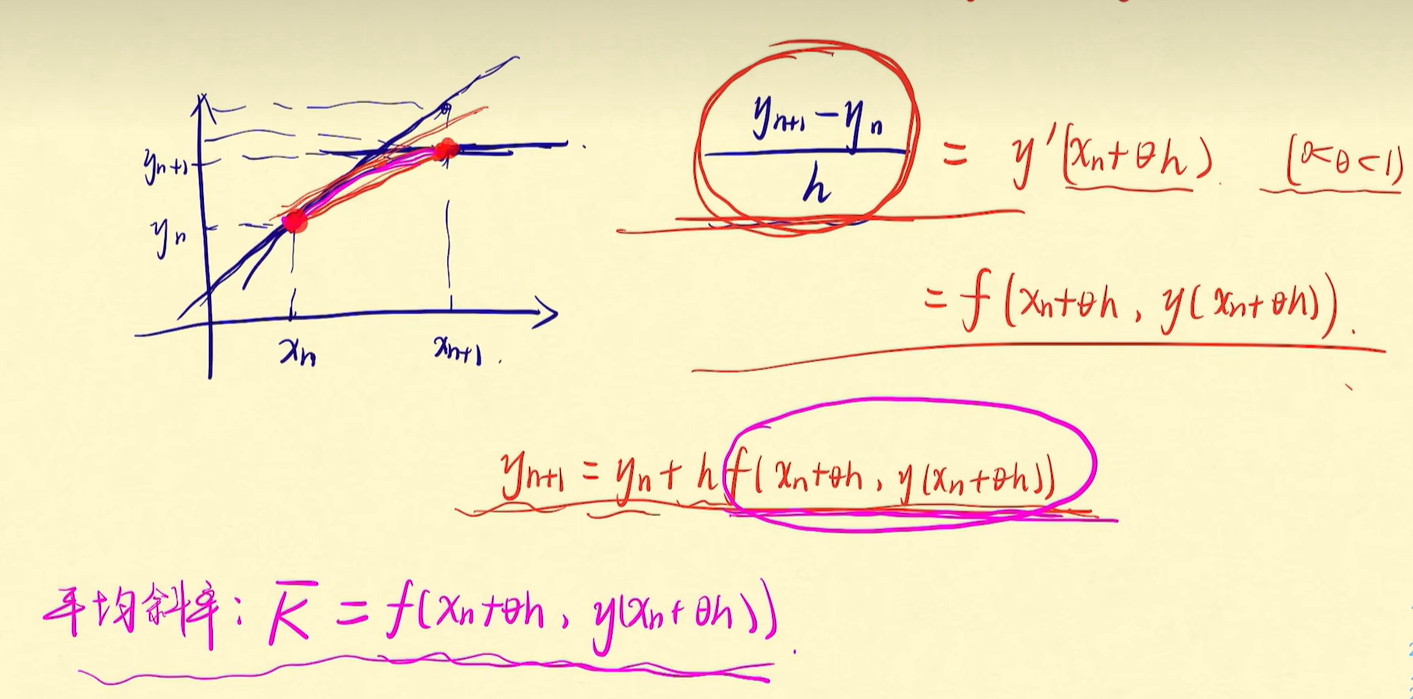 y_{n+1}
y_n
x_n
x_{n+1}.
\frac{y_{n+1}-y_n}{h} = y'(x_n+θh). (0<θ<1)
= f(x_n+θh, y(x_n+θh)).
y_{n+1} = y_n + h f(x_n+θh, y(x_n+θh))
平均斜率: \overline{K} = f(x_n+θh, y(x_n+θh)).